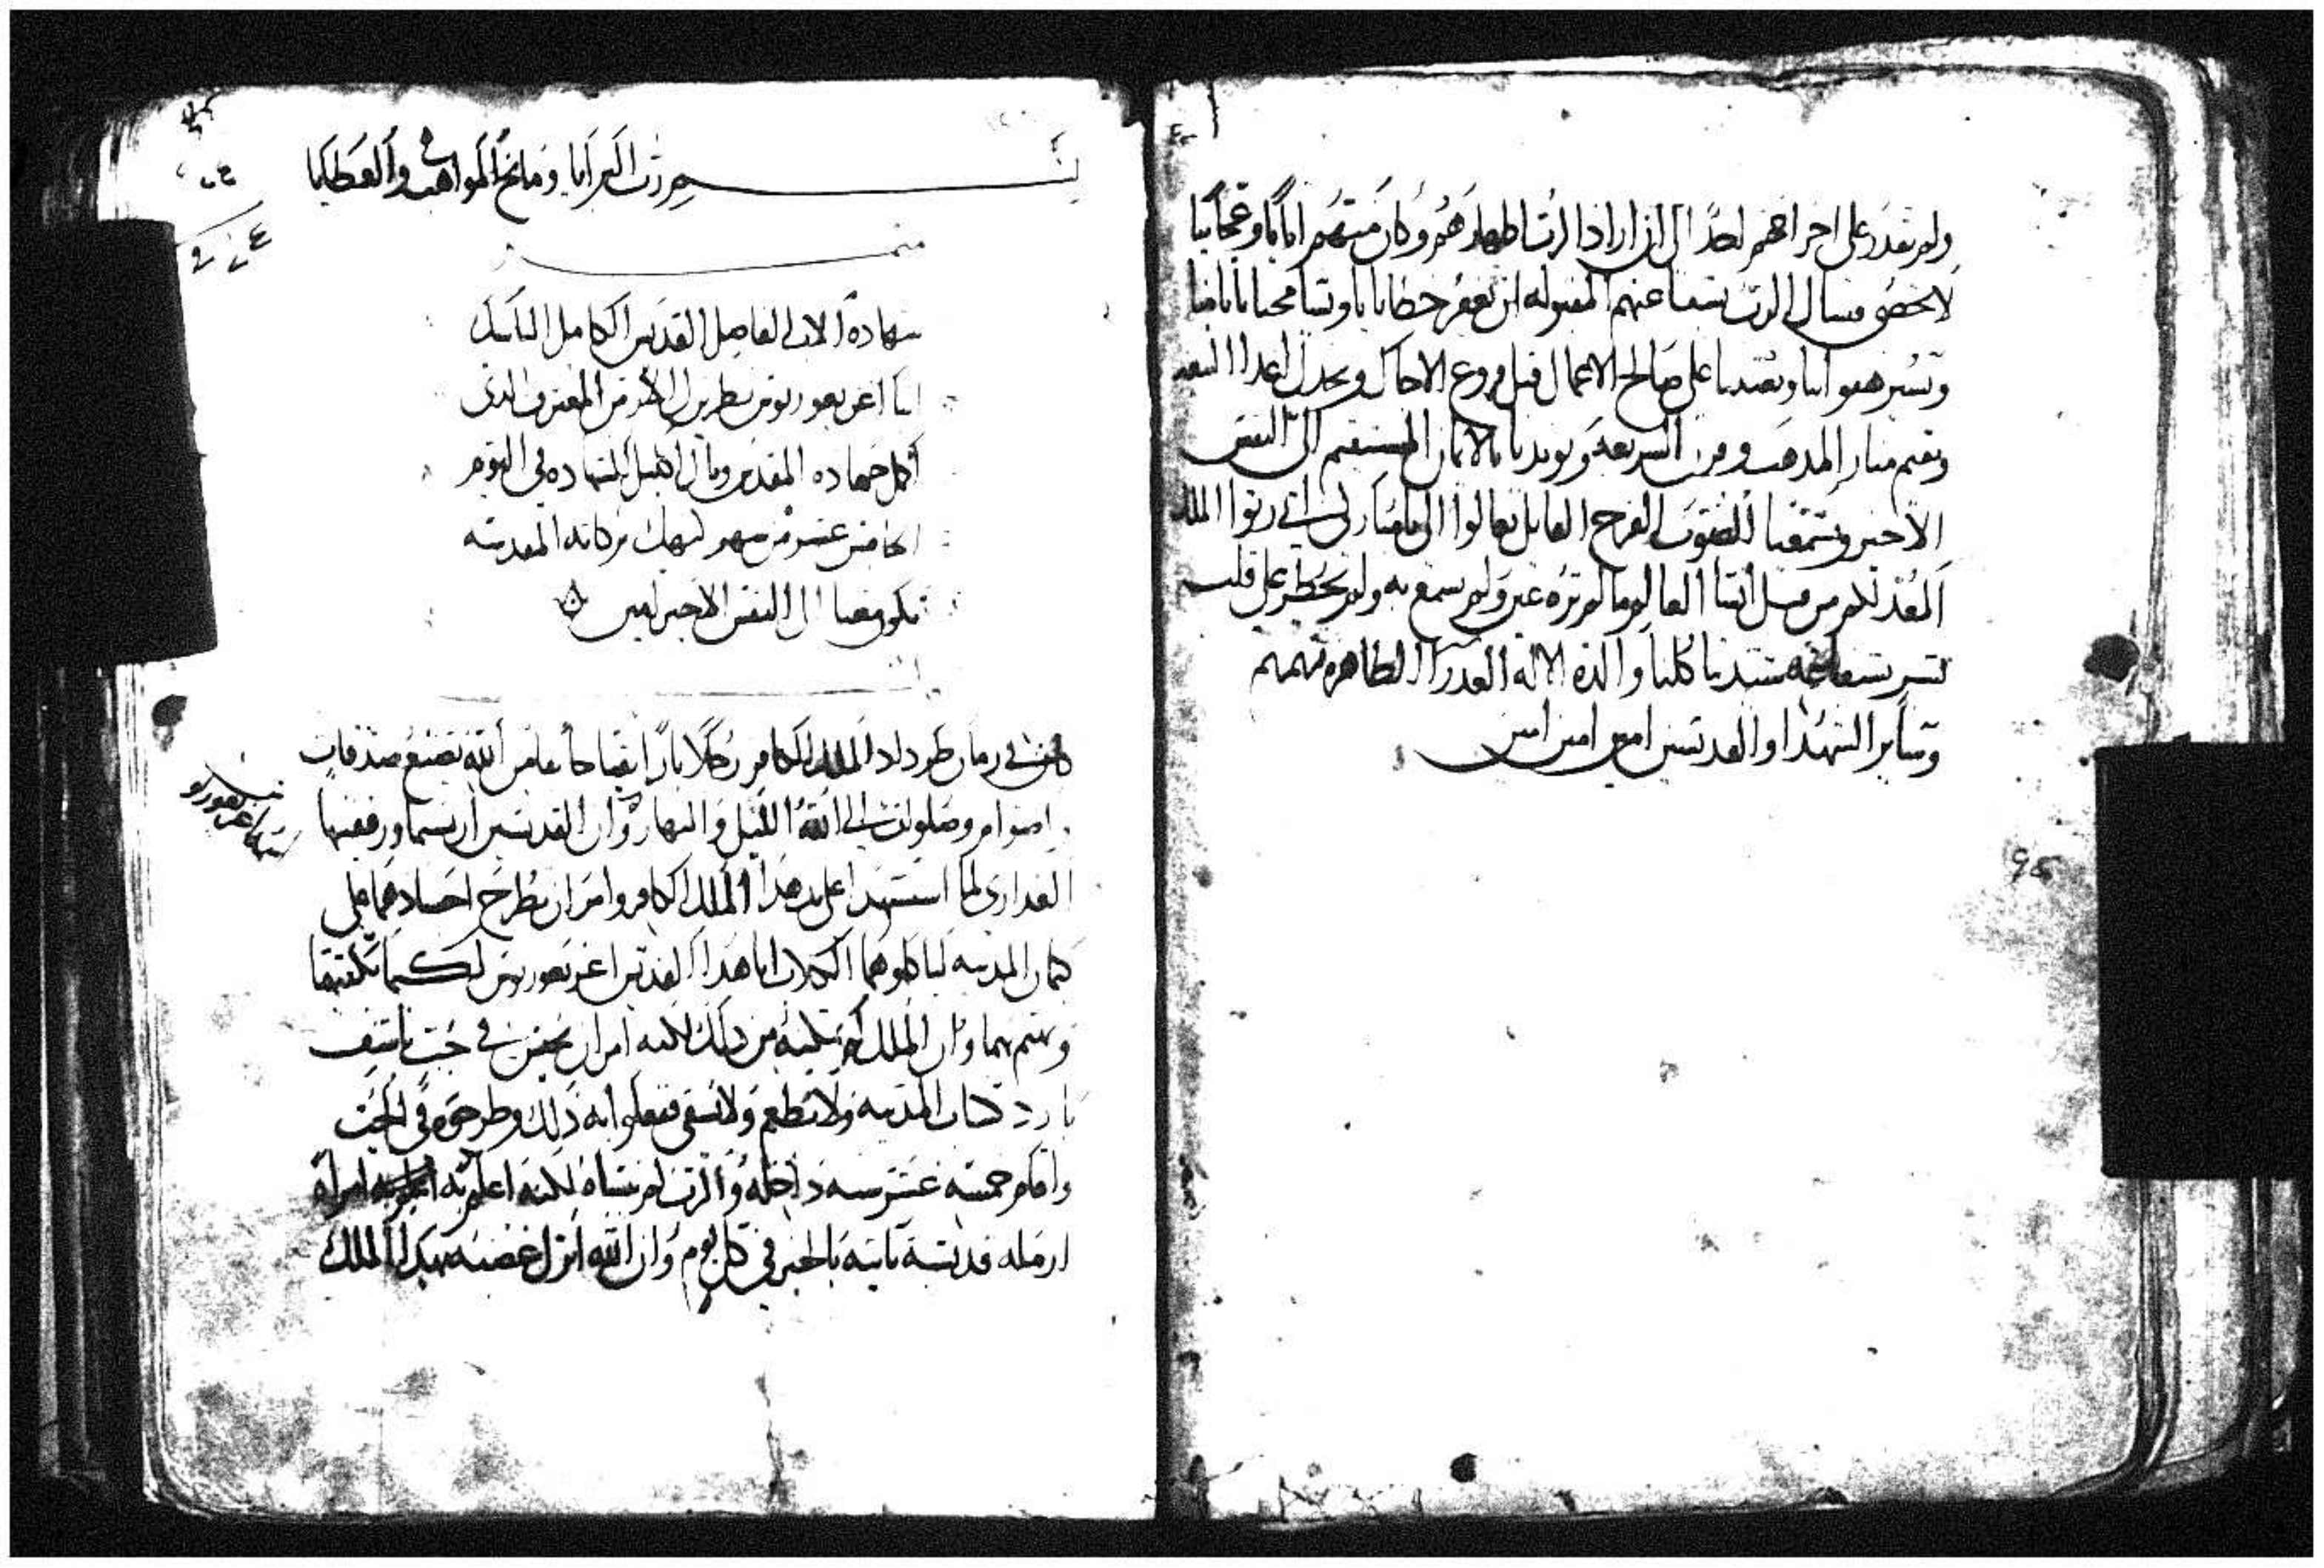 ولم يقدر على اخراجهم احد الى ان اراد الرب اظهارهم وكان منهم اياتا وعجايبا
لا تحصى فنسال الرب بشفاعتهم المقبوله ان يغفر خطايانا ويسامحنا بآثامنا
ويستر هفواتنا ويعضدنا على صالح الاعمال قبل فروغ الاجال ويخدل اعدا البيعه
ويقيم منار المدهب وقرن الشريعه ويويدنا بالايمان المستقيم الى النفس
الاخير ويسمعنا الصوت الفرح القايل تعالوا الي يا مباركي ابي رثوا الملك
المعد لكم من قبل انشا العالم ما لم تره عين ولم تسمع به ولم يخطر على قلب
بشر بشفاعة سيدتنا كلنا والدة الاله العدرا الطاهره مرتمريم
وساير الشهدا والقديسين امين امين امين
٩٤
بسم رب البرايا ومانح المواهب والعطايا
شهادة الاب الفاضل القديس الكامل الناسك
انبا اغريغوريوس بطريرك الارمن المعترف الدي
اكمل جهاده المقدس ونال اكليل الشهاده في اليوم
الخامس عشر من شهر كيهك بركاته المقدسه
تكون معنا الى النفس الاخير امين
كان في زمان طرداد الملك الكافر رجلا بارا تقيا خائفا من الله يصنع صدقات
واصوام وصلوات الى الله الليل والنهار وان القديسين اربسيما ورفقتها
العداري لما استشهدا على يد هدا الملك الكافر وامر ان يطرح اجسادهما على
كيمان المدينه لياكلوهما الكلاب اتا هدا القديس اغريغوريوس لكيما يكفنهما
ويهتم بهما وان الملك لم يمكنه من دلك لكنه امر ان يحبس في جب ناشف
بارد المدينه ولا يطعم ولا يسقى ففعلوا به دلك وطرحوه في الجب
واقام خمسة عشر سنه داخله والرب لم ينساه لكنه اعلم به امراة
ارمله قديسة تاتيه بالخبز في كل يوم وان الله انزل غضبه بهدا الملك